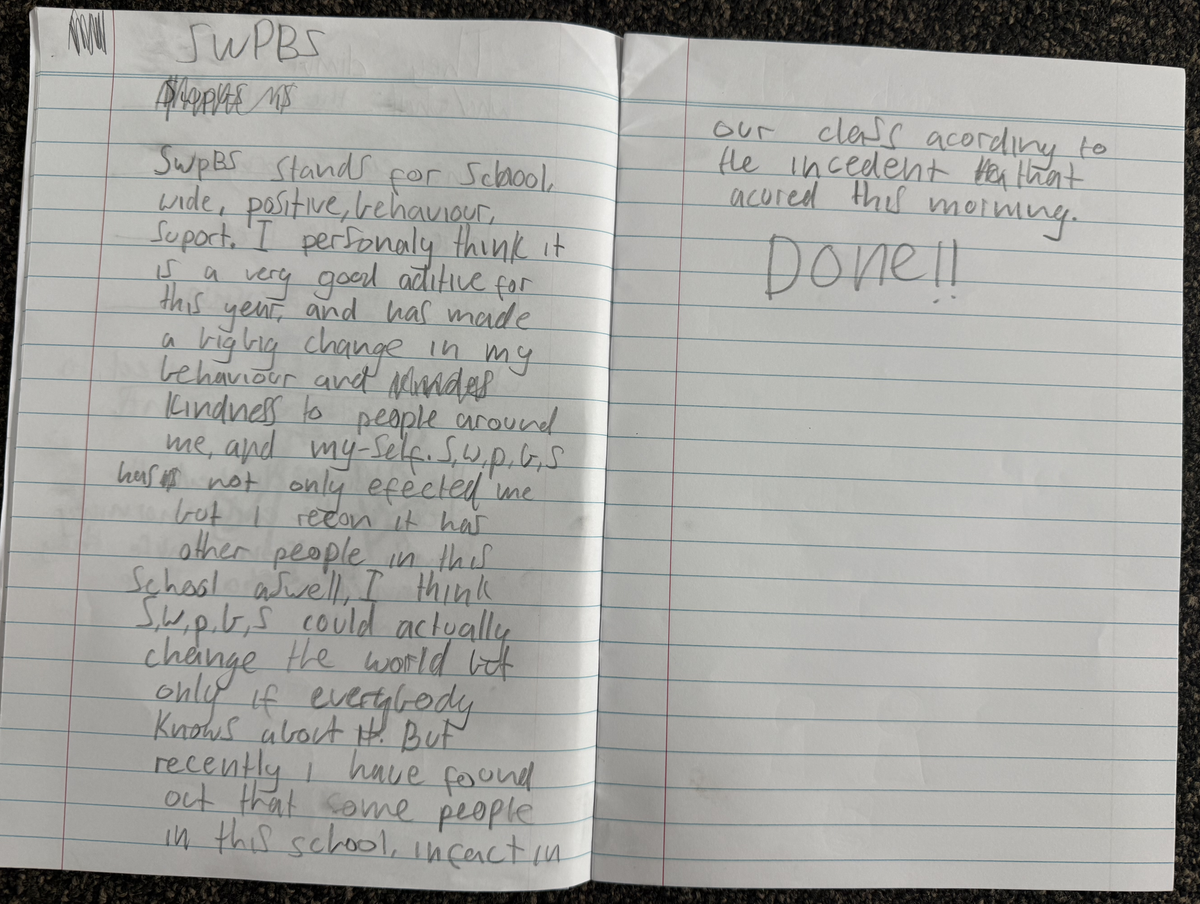 SWPBS
SWpBS stands for School,
wide, positive, behaviour,
suport. I personaly think it
is a very good aditive for
this year, and has made
a big big change in my
behaviour and
kindness to people around
me, and my-self. S,w,p,b,s
has not only efected me
but I recon it has
other people in this
School aswell, I think
S,w,p,b,s could actually
change the world but
only if everybody
knows about it. But
recently i have found
out that some people
in this school, infact in
our class acording to
the incedent that
acured this morning.
Done!!